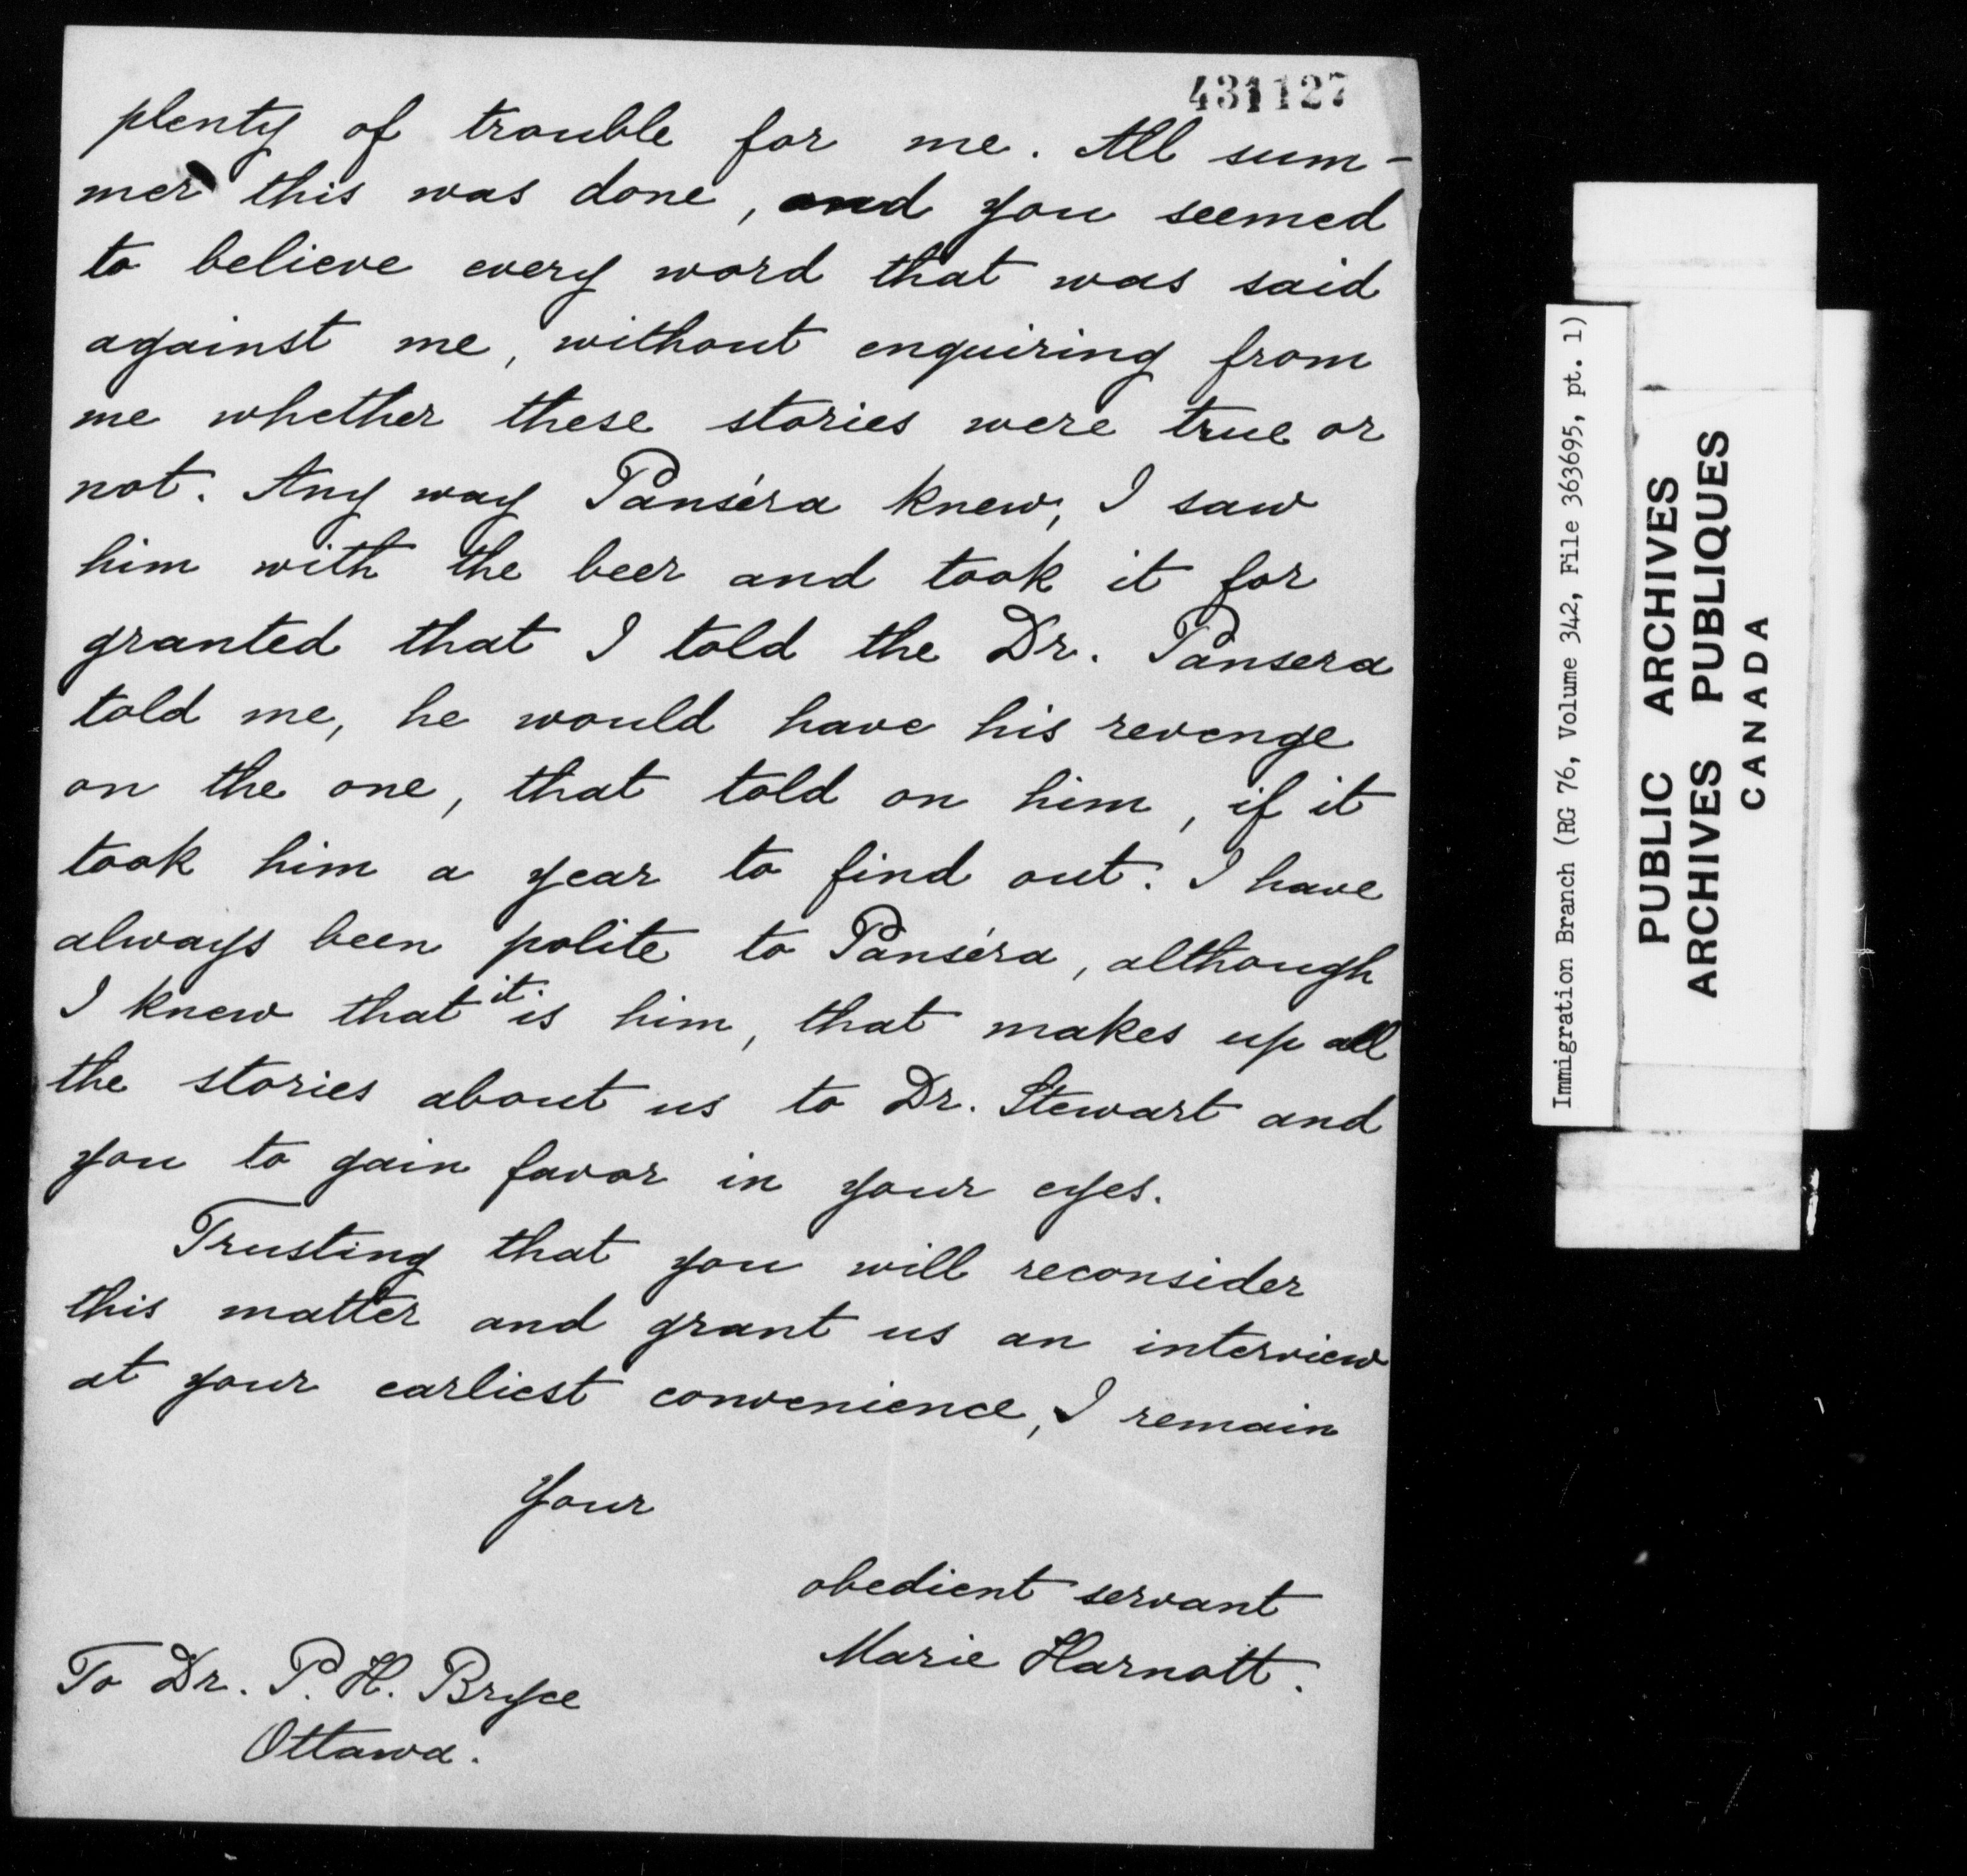 431127
plenty of trouble for me. All sum-
mer this was done, and you seemed
to believe every word that was said
against me, without enquiring from
me whether these stories were true or
not. Any way Panséra knew, I saw
him with the beer and took it for
granted that I told the Dr. Pansera
told me, he would have his revenge
on the one, that told on him, if it
took him a year to find out. I have
always been polite to Panséra, although
I knew that it is him, that makes up all
the stories about us to Dr. Stewart and
you to gain favor in your eyes.
Trusting that you will reconsider
this matter and grant us an interview
at your earliest convenience, I remain
Your
obedient servant
Marie Harnott.
To Dr. P. H. Bryce
Ottawa.
Immigration Branch (RG 76, Volume 342, File 363695, pt. 1)
PUBLIC ARCHIVES
ARCHIVES PUBLIQUES
CANADA